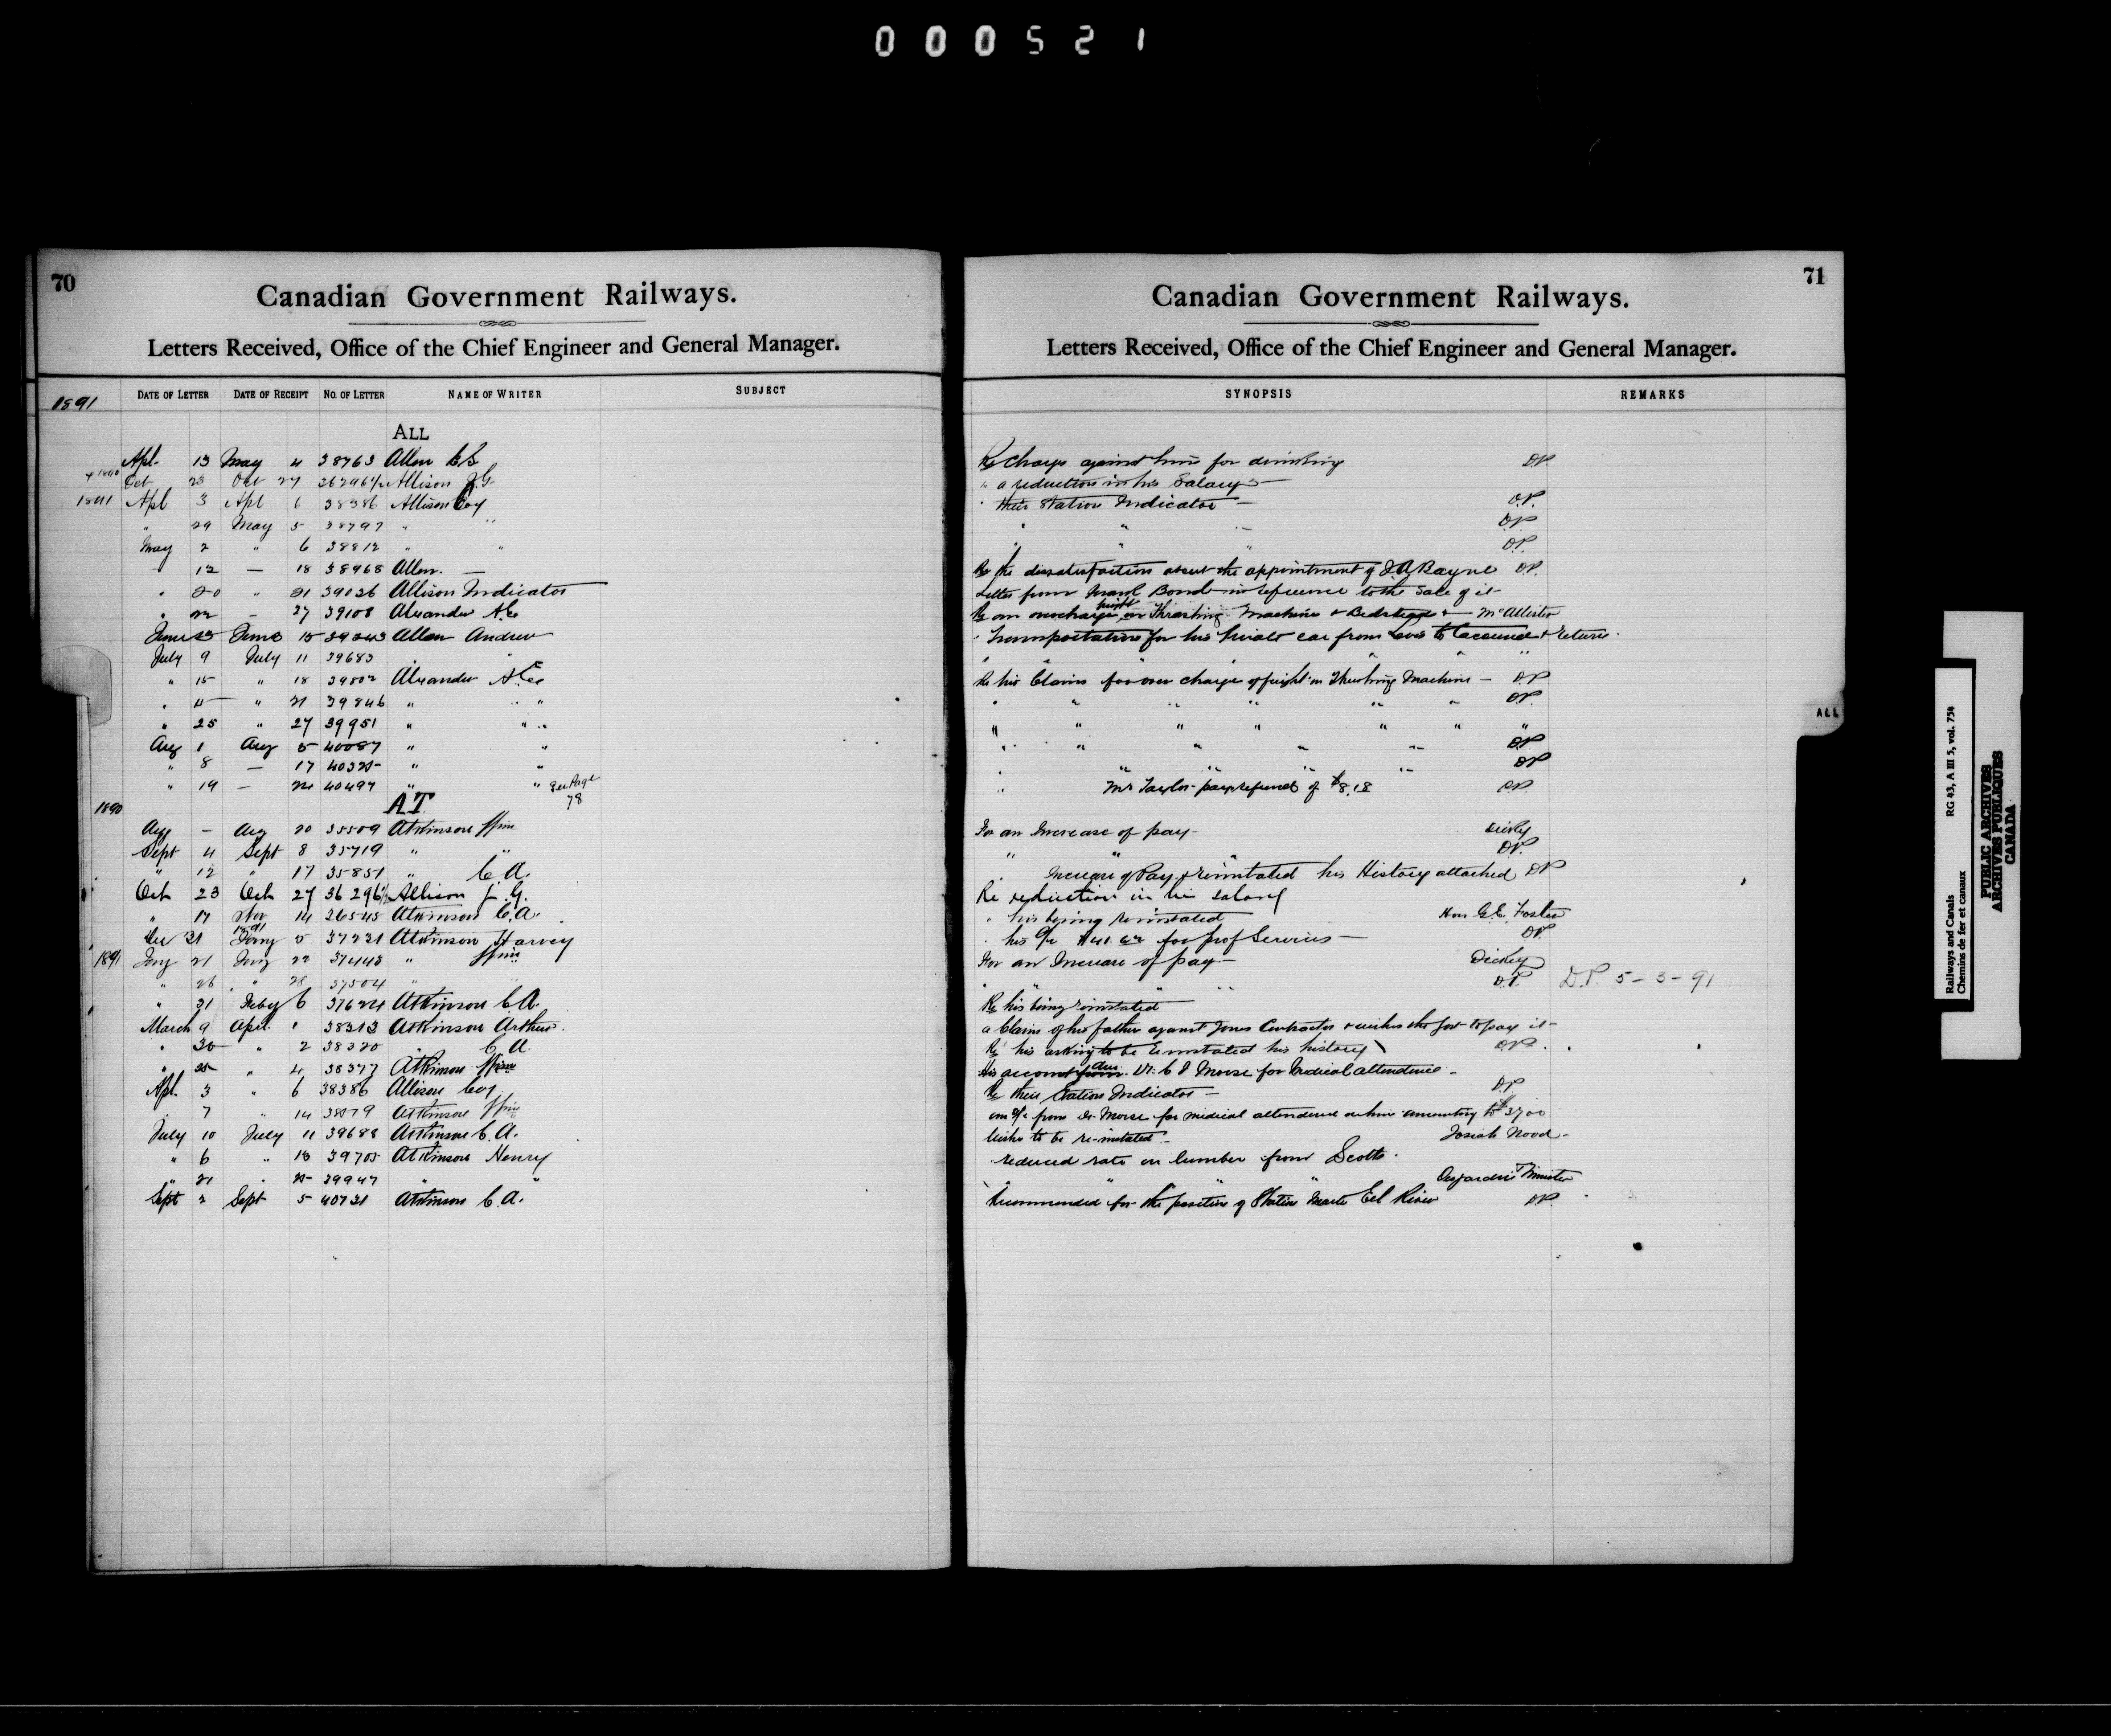 000521
70
Canadian Government Railways.
Letters Received, Office of the Chief Engineer and General Manager.
1891 DATE OF LETTER DATE OF RECEIPT NO. OF LETTER NAME OF WRITER SUBJECT
ALL
Apl. 13 May 4 38763 Allen
1890 Oct 23 Oct 27 36296½ Allison J.G.
1891 Apl 3 Apl 6 38386 Allison Coy
" 29 May 5 38797 " "
May 2 " 6 38812 " "
12 — 18 38968 Allen. —
" 20 " 21 39026 Allison Indicator
" 22 – 27 39108 Alexander
June June 15 39343 Allan Andrew
July 9 July 11 39683 " "
" 15 " 18 39802 Alexander
" " 21 39846 " "
" 25 " 27 39951 " "
Aug 1 Aug 5 40087 " "
" 8 — 17 " "
" 19 — 40497 " " See Page 78
1890 AT
Aug – Aug 20 35509 Atkinson Wm
Sept 4 Sept 8 35719 " "
" 12 " 17 35851 " C.A.
Oct 23 Oct 27 36296½ Allison J.G.
" 17 Nov 14 Atkinson C.A.
Dec 31 1891 Jany 5 37231 Atkinson Harvey
1891 Jany 21 Jany 22 37443 " Wm
" 26 " 28 37504 " "
" 31 Feby 6 37624 Atkinson C.A.
March 9 Apl. 1 38313 Atkinson Arthur.
" 30 " 2 38320 " C.A.
" " 4 38377 Atkinson Wm
Apl. 3 " 6 38386 Allison Coy
" 7 " 14 38579 Atkinson Wm
July 10 July 11 39688 Atkinson C.A.
" 6 " 13 39705 Atkinson Henry
" 21 " 25 39947 " "
Sept 2 Sept 5 40731 Atkinson C.A.
71
Canadian Government Railways.
Letters Received, Office of the Chief Engineer and General Manager.
SYNOPSIS REMARKS
Re charge against him for drinking D.P.
" a reduction in his Salary —
" their Station Indicator — D.P.
" " " D.P.
" " " D.P.
Re the dissatisfaction about the appointment of Rayne D.P.
Letter from Bond in reference to the sale of it –
Re an overcharge freight on Thrashing Machine & Bedsteads McAllister
" Transportation for his private car from Levis to & return.
" " " " "
Re his Claim for over charge of freight on Thrashing Machine — D.P.
" " " " " " D.P.
" " " " " " "
" " " " " D.P.
" " " " D.P.
" Mr Taylor pay refund of $8.18 D.P.
For an Increase of pay – Dickey
" " " D.P.
Increase of Pay & reinstated his History attached D.P.
Re reduction in his salary
" his being reinstated Hon G.E. Foster
" his for prof Services — D.P.
For an Increase of pay — Dickey
" " " D.P. D.P. 5-3-91
Re his being reinstated
a Claim of his father against Jones Contractor & wishes the Govt to pay it –
Re his asking to be reinstated his history D.P.
His account Dr. Morse for Medical attendance. –
Re their Station Indicator — D.P.
from Dr. Morse for medical attendance on him amounting to $37.00
Wishes to be re-instated – Josiah Wood –
reduced rate on lumber from Scotts.
" " " Desjardins Minister
Recommended for the position of Station Master Eel River D.P.
ALL
Railways and Canals RG 43, A III 5, vol. 754
Chemins de fer et canaux
PUBLIC ARCHIVES
ARCHIVES PUBLIQUES
CANADA